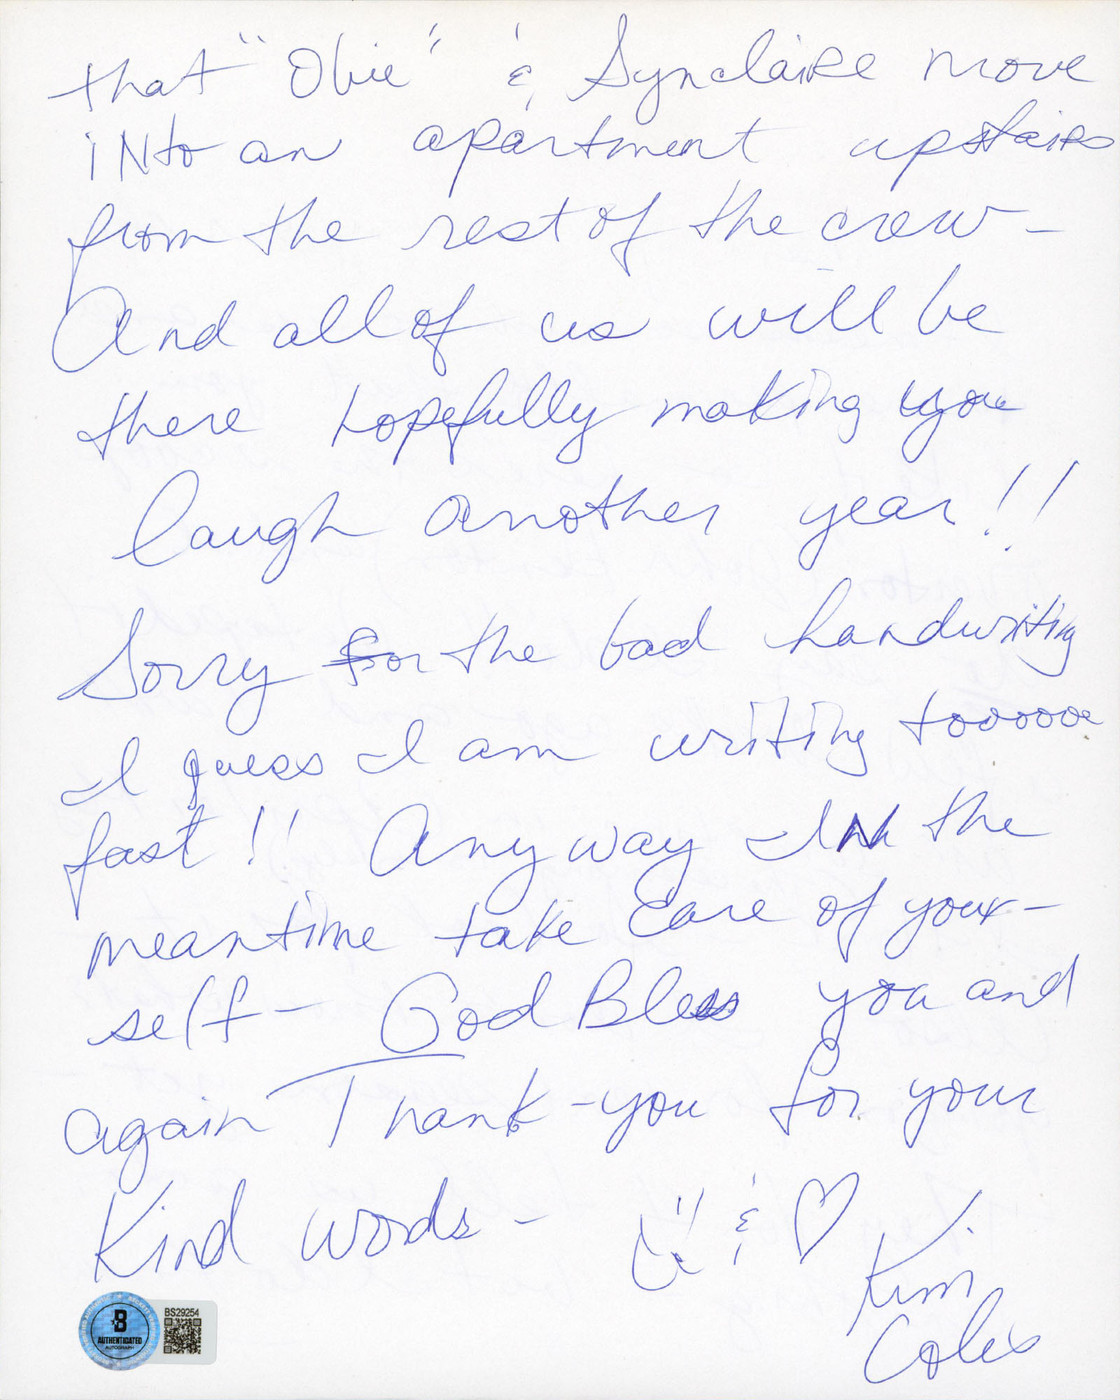 that "Obie" & Synclaire move
into an apartment upstairs
from the rest of the crew -
And all of us will be
there hopefully making you
laugh another year!!
Sorry for the bad handwriting
I guess I am writing toooooo
fast!! Anyway In the
meantime take care of your-
self - God Bless you and
again Thank-you for your
Kind words - & ♡
Kim
Coles
BS29254
B
AUTHENTICATED
AUTOGRAPH